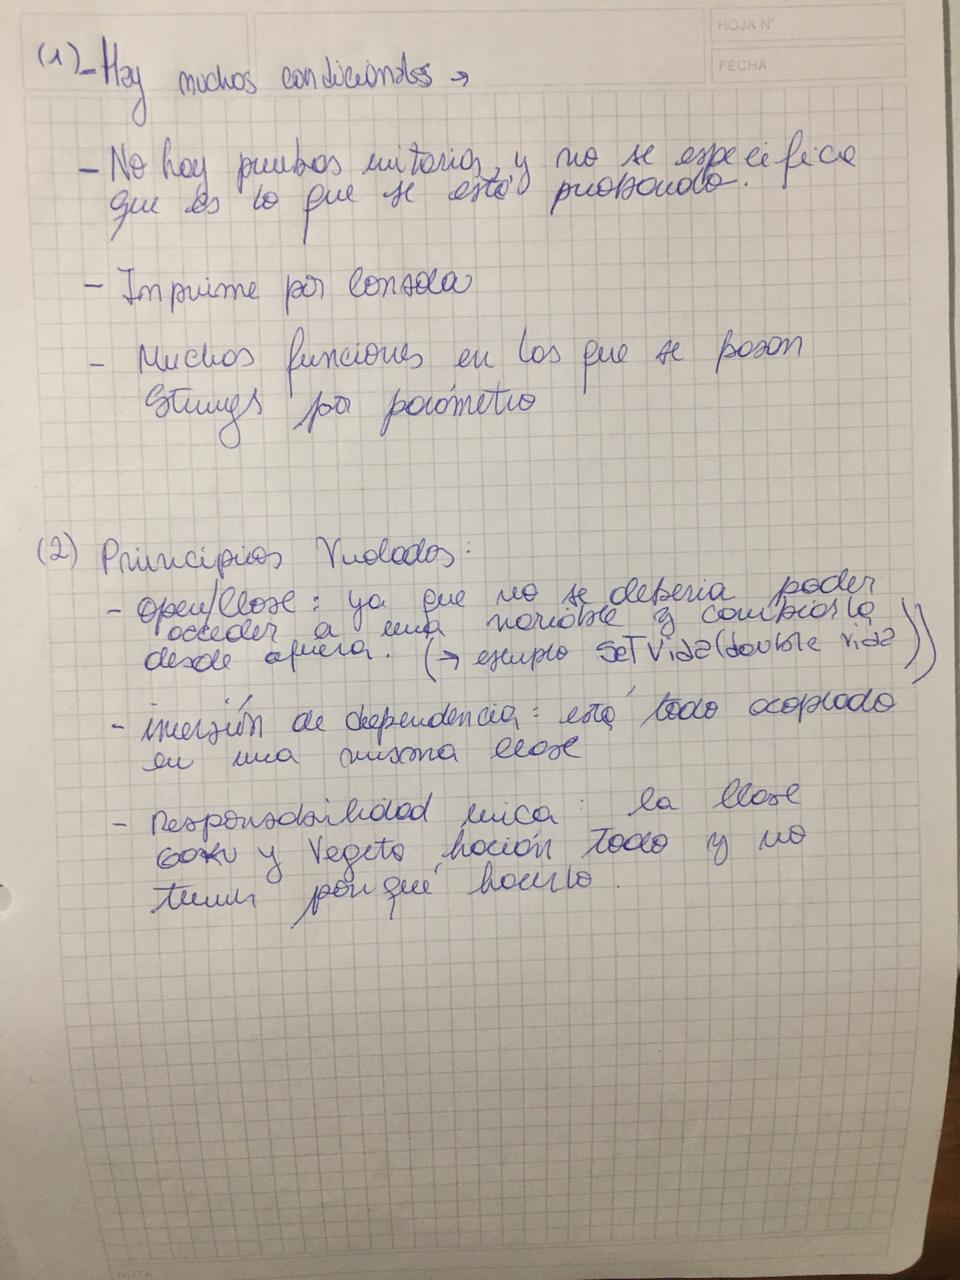 HOJA N°
FECHA
(1) - Hay muchos condicionales →
- No hay pruebas unitarias, y no se especifica
que es lo que se está probando.
- Imprime por consola
- Muchas funciones en las que se pasan
Strings por parámetro
(2) Principios Violados:
- open/close: ya que no se debería poder
acceder a una variable y cambiarla
desde afuera. (→ ejemplo SetVida(double vida))
- inversión de dependencia: está todo acoplado
en una misma clase
- Responsabilidad unica: la clase
Goku y Vegeta hacían todo y no
tienen por qué hacerlo.
NOTA